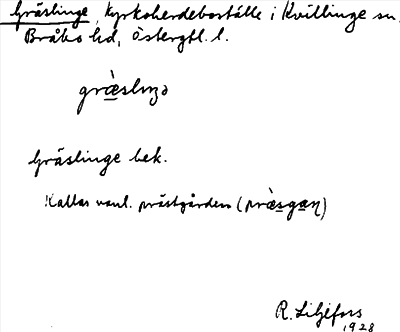 Gräslinge, Kyrkoherdeboställe i Kvillinge sn.
Bråbo hd, Östergtl. l.
Gräslinge bek.
Kallas vanl. prästgården (
R. Liljefors
1928